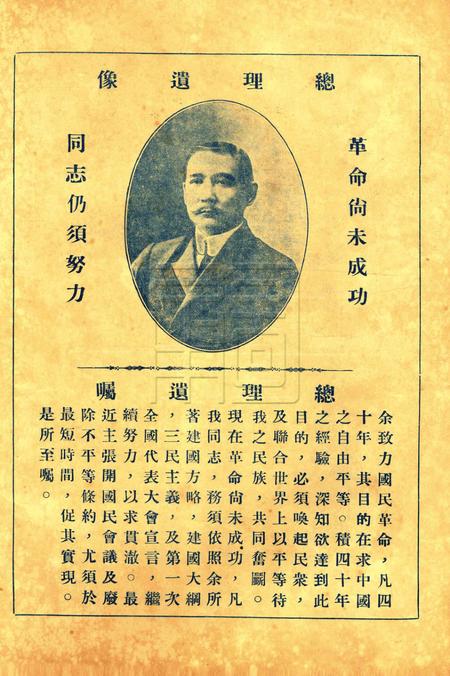 總理遺像
革命尙未成功
同志仍須努力
總理遺囑
余致力國民革命，凡四
十年，其目的在求中國
之自由平等。積四十年
之經驗，深知欲達到此
目的，必須喚起民衆，
及聯合世界上以平等待
我之民族，共同奮鬭。
現在革命尙未成功，凡
我同志，務須依照余所
著建國方略，建國大綱
，三民主義，及第一次
全國代表大會宣言，繼
續努力，以求貫澈。最
近主張開國民會議及廢
除不平等條約，尤須於
最短時間，促其實現。
是所至囑。